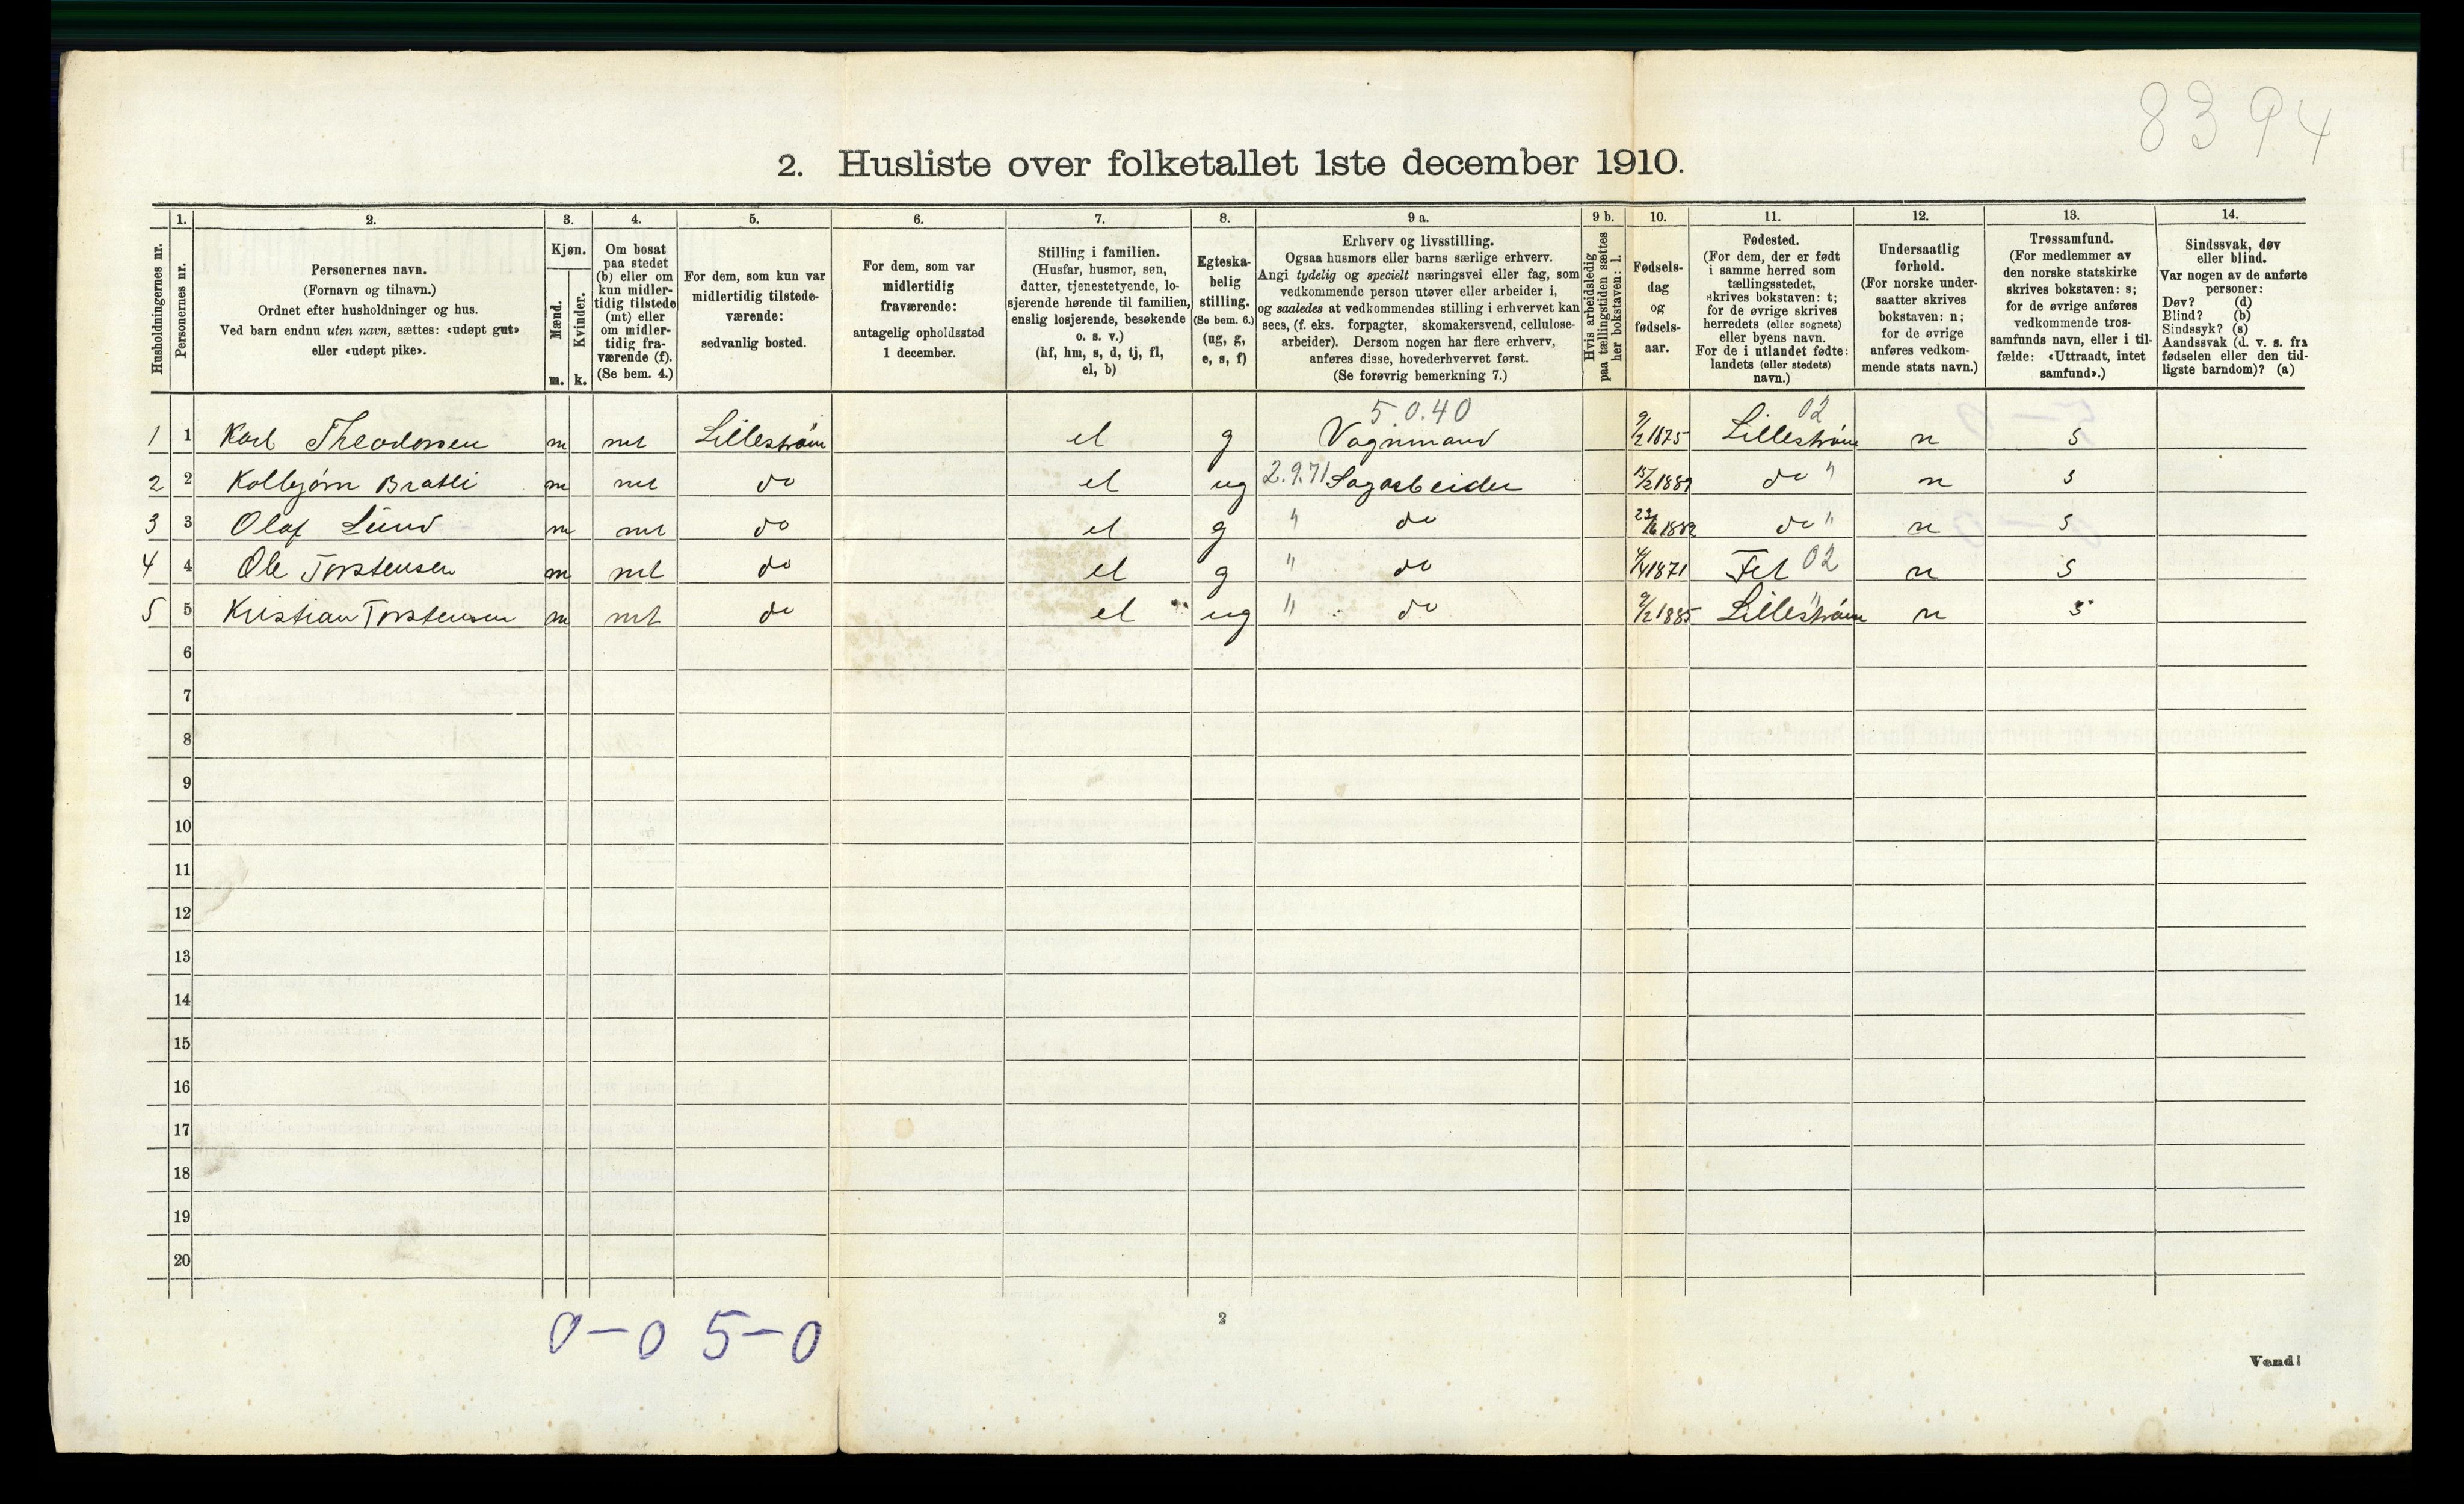 8394
2. Husliste over folketallet 1ste december 1910.
Husholdningernes nr.
1.
Personernes nr.
2.
Personernes navn.
(Fornavn og tilnavn.)
Ordnet efter husholdninger og hus.
Ved barn endnu uten navn, sættes: «udøpt gut»
eller «udøpt pike».
3.
Kjøn.
Mænd.
Kvinder.
m. k.
4.
Om bosat
paa stedet
(b) eller om
kun midler-
tidig tilstede
(mt) eller
om midler-
tidig fra-
værende (f).
(Se bem. 4.)
5.
For dem, som kun var
midlertidig tilstede-
værende:
sedvanlig bosted.
6.
For dem, som var
midlertidig
fraværende:
antagelig opholdssted
1 december.
7.
Stilling i familien.
(Husfar, husmor, søn,
datter, tjenestetyende, lo-
sjerende hørende til familien,
enslig losjerende, besøkende
o. s. v.)
(hf, hm, s, d, tj, fl,
el, b)
8.
Egteska-
belig
stilling.
(Se bem. 6.)
(ug, g,
e, s, f)
9 a.
Erhverv og livsstilling.
Ogsaa husmors eller barns særlige erhverv.
Angi tydelig og specielt næringsvei eller fag, som
vedkommende person utøver eller arbeider i,
og saaledes at vedkommendes stilling i erhvervet kan
sees, (f. eks. forpagter, skomakersvend, cellulose-
arbeider). Dersom nogen har flere erhverv,
anføres disse, hovederhvervet først.
(Se forøvrig bemerkning 7.)
9 b.
Hvis arbeidsledig
paa tællingstiden sættes
her bokstaven: l.
10.
Fødsels-
dag
og
fødsels-
aar.
11.
Fødested.
(For dem, der er født
i samme herred som
tællingsstedet,
skrives bokstaven: t;
for de øvrige skrives
herredets (eller sognets)
eller byens navn.
For de i utlandet fødte:
landets (eller stedets)
navn.)
12.
Undersaatlig
forhold.
(For norske under-
saatter skrives
bokstaven: n;
for de øvrige
anføres vedkom-
mende stats navn.)
13.
Trossamfund.
(For medlemmer av
den norske statskirke
skrives bokstaven: s;
for de øvrige anføres
vedkommende tros-
samfunds navn, eller i til-
fælde: «Uttraadt, intet
samfund».)
14.
Sindssvak, døv
eller blind.
Var nogen av de anførte
personer:
Døv? (d)
Blind? (b)
Sindssyk? (s)
Aandssvak (d. v. s. fra
fødselen eller den tid-
ligste barndom)? (a)
5.0.40 02
1 1 Karl Theodorsen m mt Lillestrøm el g Vognmand 9/2 1875 Lillestrøm n s
2 2 Kolbjørn Bratli m mt do el ug 2.9.71 Sagarbeider do " n s
3 3 Olaf Lund m mt do el g " do do " n s
4 4 Ole Torstensen m mt do el g " do 4/4 1871 Fet 02 n s
5 5 Kristian Torstensen m mt do el ug " do 9/2 1885 Lillestrøm " n s
6
7
8
9
10
11
12
13
14
15
16
17
18
19
20
0-0 5-0
2
Vend!